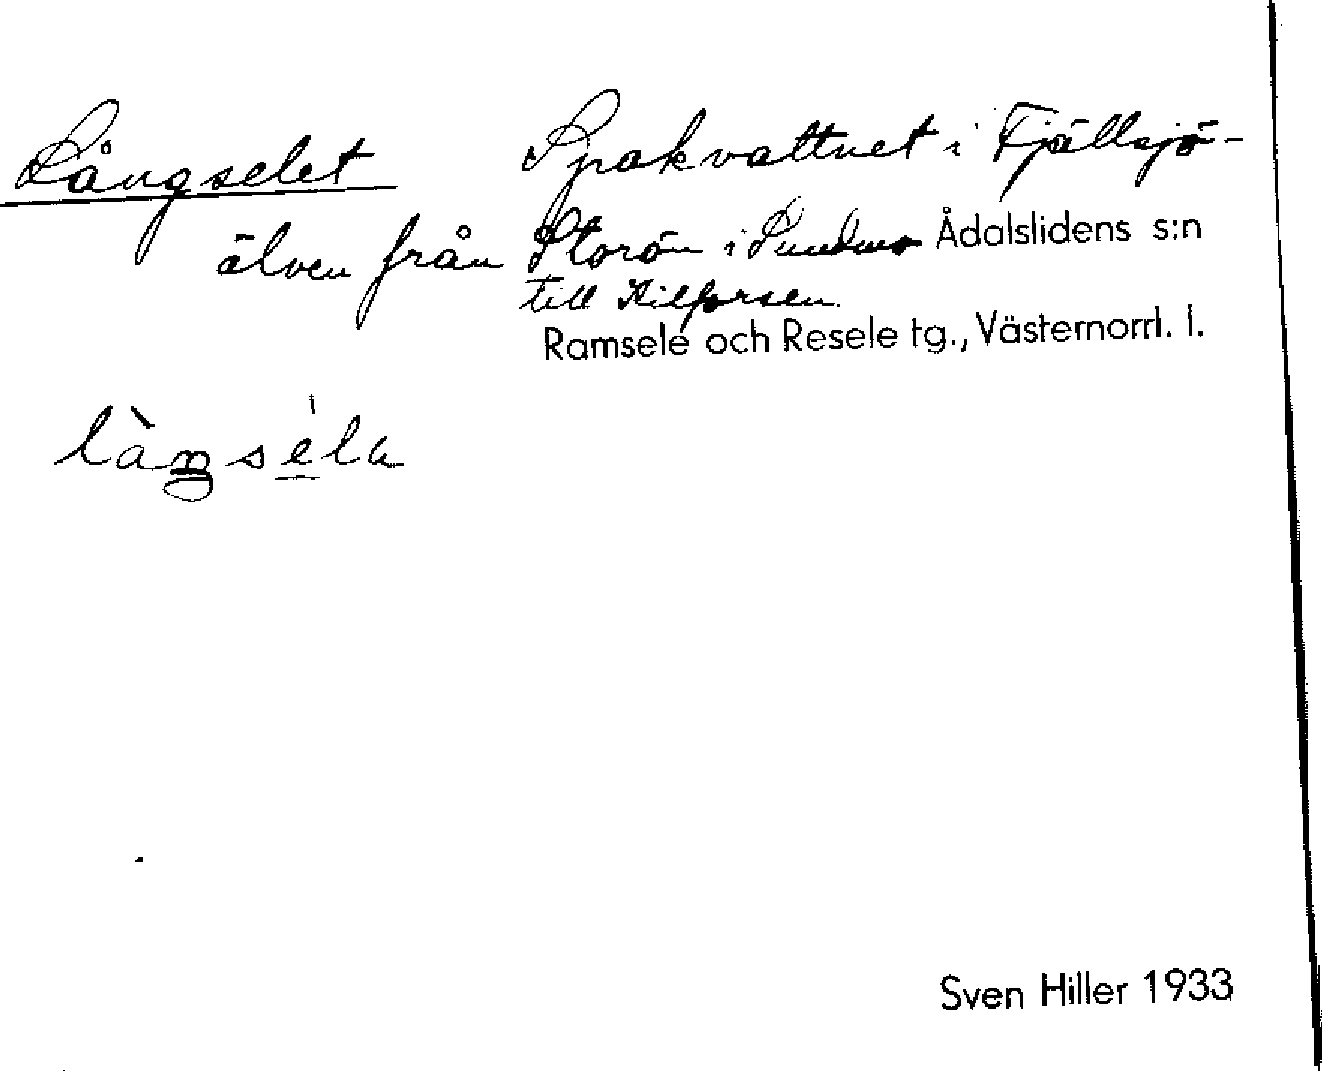 Långselet Spakvattnet i Fjällsjö-
älven från Storön i Sundmo Ådalslidens s:n
till Kilforsen
Ramsele och Resele tg., Västernorrl. l.
làŋsèla
Sven Hiller 1933